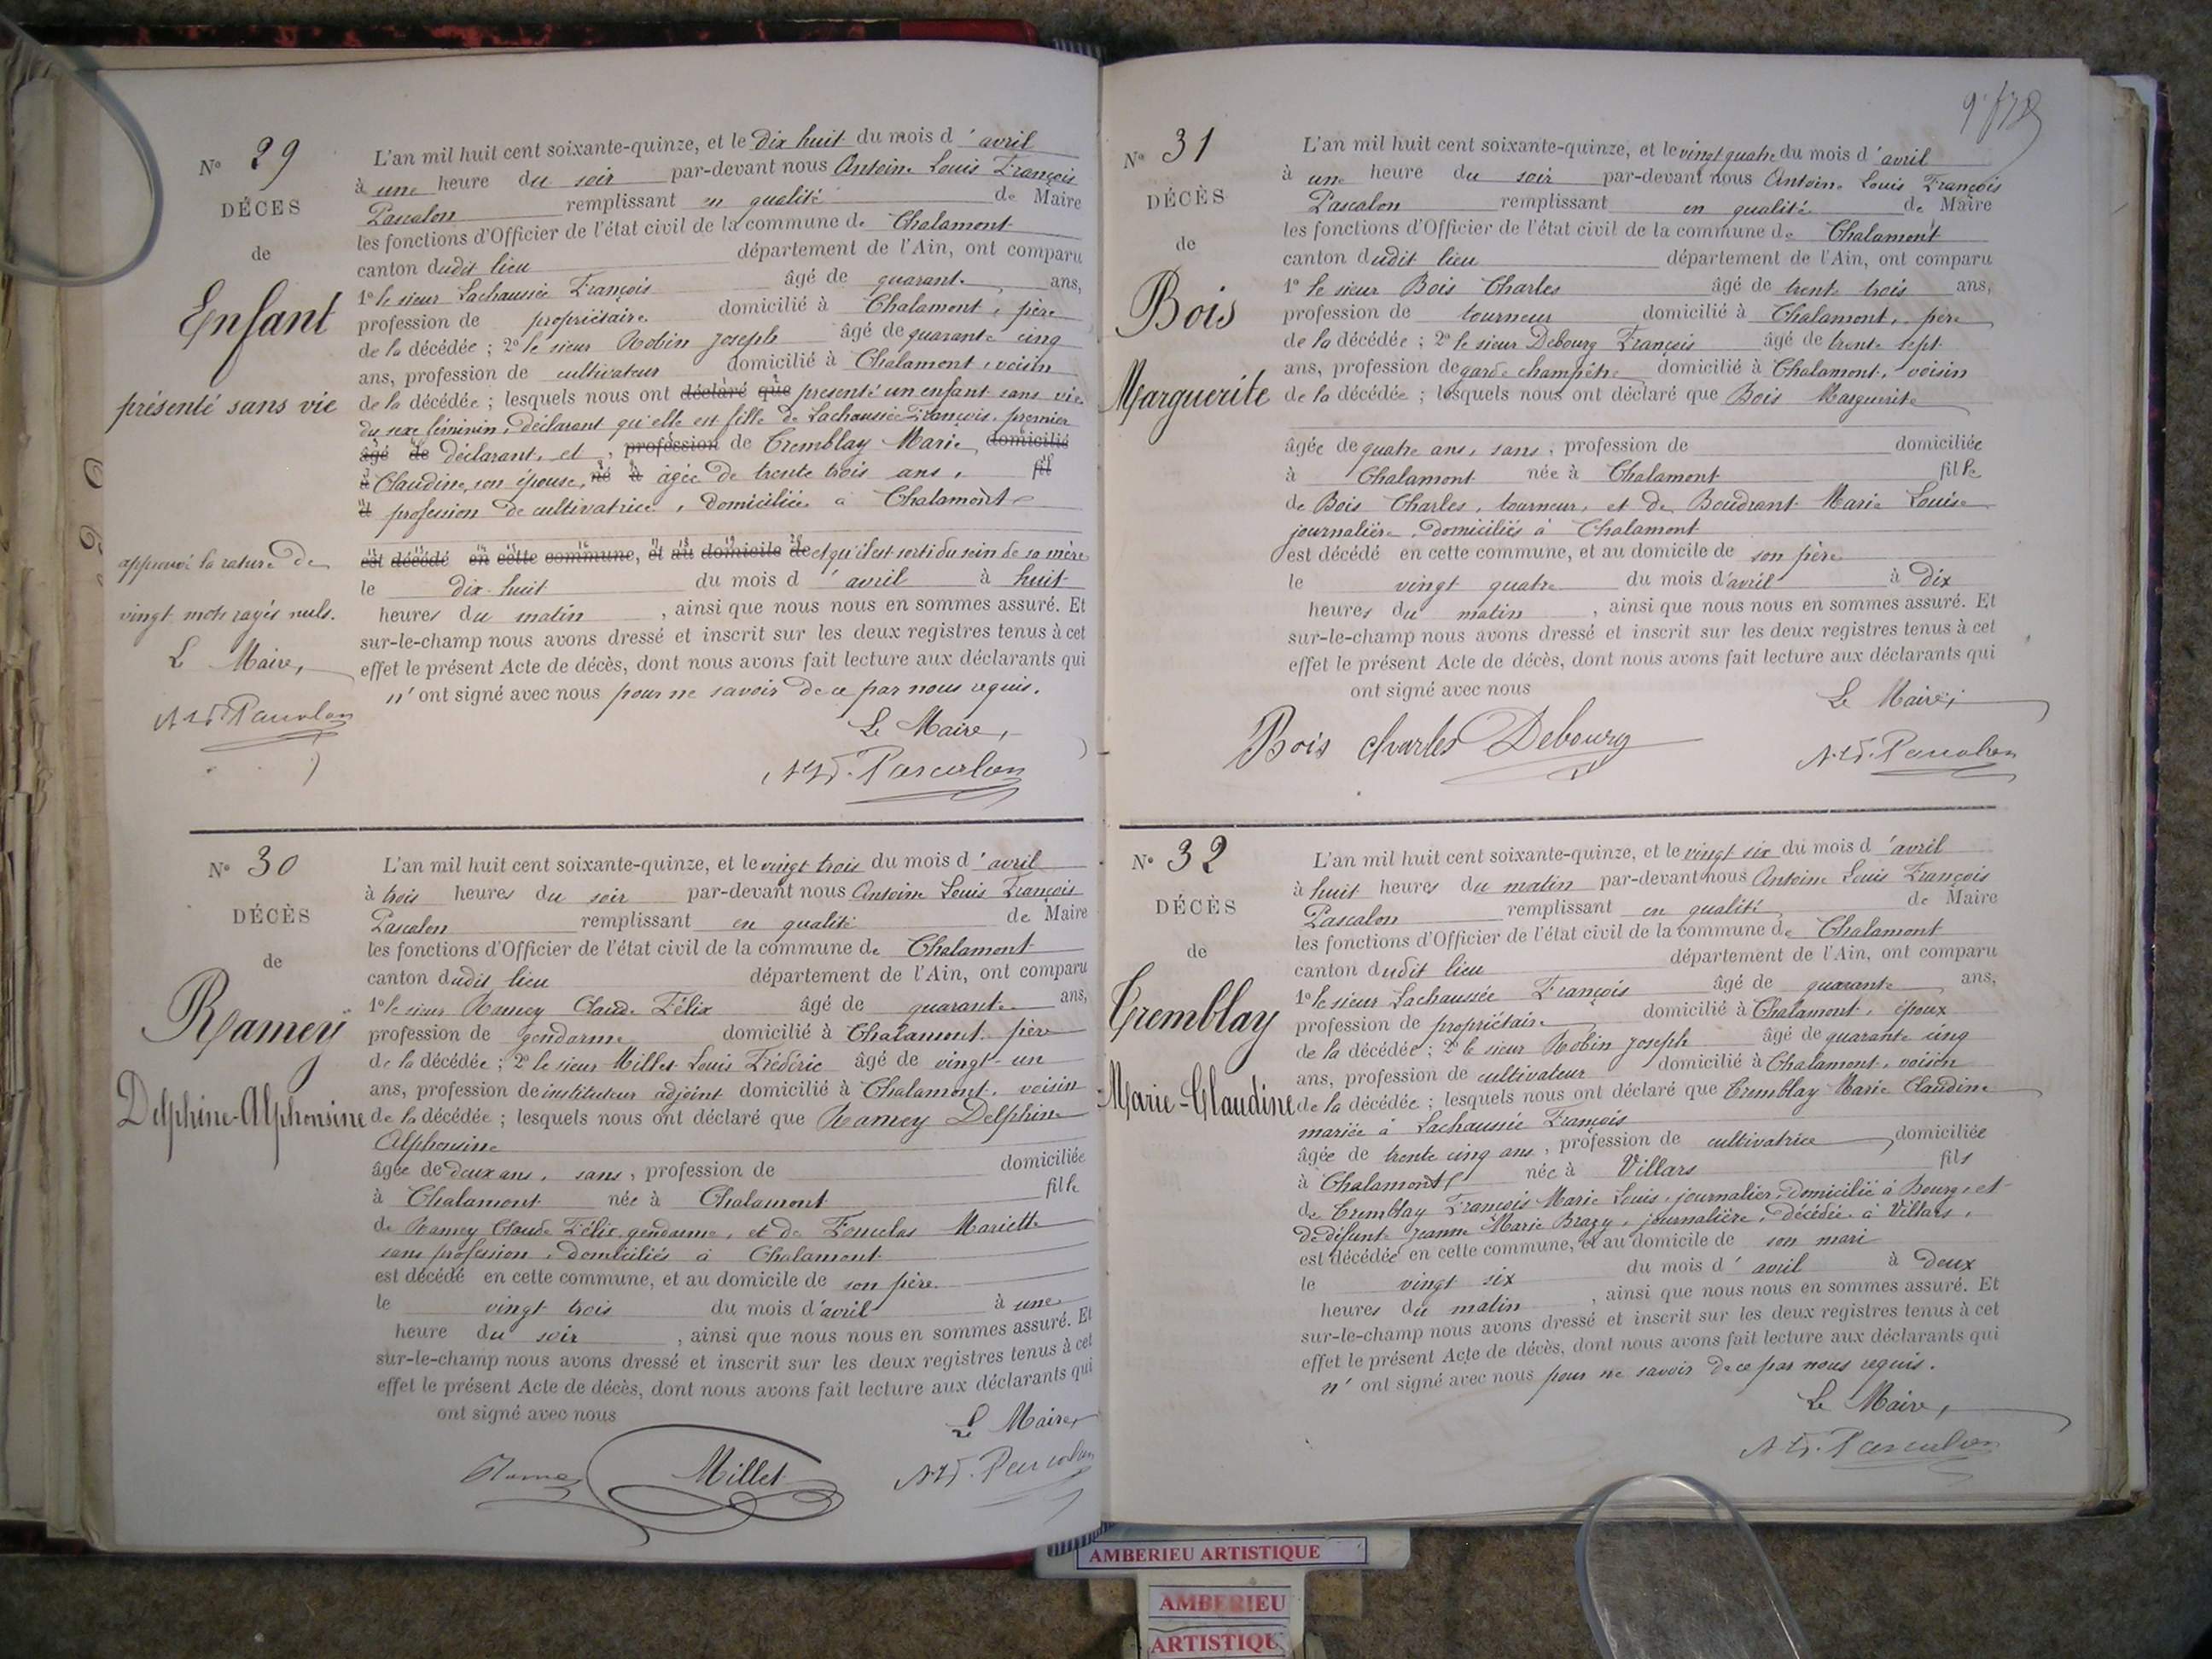 N° 29
DÉCES
de
Enfant
présenté sans vie
approuvé la rature de
vingt mots rayés nuls.
Le Maire,
L'an mil huit cent soixante-quinze, et le dix huit du mois d'avril
à une heure du soir par-devant nous Antoine Louis François
Pascalon remplissant en qualité de Maire
les fonctions d'Officier de l'état civil de la commune de Chalamont
canton dudit lieu département de l'Ain, ont comparu
1° le sieur Lachaussée François âgé de quarante ans,
profession de propriétaire domicilié à Chalamont, père
de la décédée ; 2° le sieur Robin Joseph âgé de quarante cinq
ans, profession de cultivateur domicilié à Chalamont, voisin
de la décédée ; lesquels nous ont déclaré que présenté un enfant sans vie
du sexe féminin, déclarant qu'elle est fille de Lachaussée François, premier
âgé de déclarant, et , profession de Tremblay Marie domicilié
à Claudine, son épouse, né à âgée de trente trois ans, fil
d profession de cultivatrice, domiciliée à Chalamont
est décédé en cette commune, et au domicile de et qu'il est sorti du sein de sa mère
le dix-huit du mois d'avril à huit
heures du matin , ainsi que nous nous en sommes assuré. Et
sur-le-champ nous avons dressé et inscrit sur les deux registres tenus à cet
effet le présent Acte de décès, dont nous avons fait lecture aux déclarants qui
n'ont signé avec nous pour ne savoir de ce par nous requis.
Le Maire,
A L F. Pascalon
N° 30
DÉCÈS
de
Ramey
Delphine-Alphonsine
L'an mil huit cent soixante-quinze, et le vingt trois du mois d'avril
à trois heures du soir par-devant nous Antoine Louis François
Pascalon remplissant en qualité de Maire
les fonctions d'Officier de l'état civil de la commune de Chalamont
canton dudit lieu département de l'Ain, ont comparu
1° le sieur Ramey Claude Félix âgé de quarante ans,
profession de gendarme domicilié à Chalamont, père
de la décédée ; 2° le sieur Millet Louis Frédéric âgé de vingt-un
ans, profession de instituteur adjoint domicilié à Chalamont, voisin
de la décédée ; lesquels nous ont déclaré que Ramey Delphine
Alphonsine
âgée de deux ans, sans, profession de domiciliée
à Chalamont née à Chalamont fille
de Ramey Claude Félix, gendarme, et de Mariette
sans profession, domiciliés à Chalamont
est décédé en cette commune, et au domicile de son père
le vingt trois du mois d'avril à une
heure du soir , ainsi que nous nous en sommes assuré. Et
sur-le-champ nous avons dressé et inscrit sur les deux registres tenus à cet
effet le présent Acte de décès, dont nous avons fait lecture aux déclarants qui
ont signé avec nous
Le Maire,
Ramey Millet A L F. Pascalon
N° 31
DÉCÈS
de
Bois
Marguerite
L'an mil huit cent soixante-quinze, et le vingt quatre du mois d'avril
à une heure du soir par-devant nous Antoine Louis François
Pascalon remplissant en qualité de Maire
les fonctions d'Officier de l'état civil de la commune de Chalamont
canton dudit lieu département de l'Ain, ont comparu
1° le sieur Bois Charles âgé de trente trois ans,
profession de tourneur domicilié à Chalamont, père
de la décédée ; 2° le sieur Debourg François âgé de trente sept
ans, profession de garde champêtre domicilié à Chalamont, voisin
de la décédée ; lesquels nous ont déclaré que Bois Marguerite
âgée de quatre ans, sans, profession de domiciliée
à Chalamont née à Chalamont fille
de Bois Charles, tourneur, et de Boudrant Marie Louise
journalière, domiciliés à Chalamont
est décédé en cette commune, et au domicile de son père
le vingt quatre du mois d'avril à dix
heures du matin , ainsi que nous nous en sommes assuré. Et
sur-le-champ nous avons dressé et inscrit sur les deux registres tenus à cet
effet le présent Acte de décès, dont nous avons fait lecture aux déclarants qui
ont signé avec nous
Le Maire,
Bois Charles Debourg A L F. Pascalon
N° 32
DÉCÈS
de
Tremblay
Marie-Claudine
L'an mil huit cent soixante-quinze, et le vingt six du mois d'avril
à huit heures du matin par-devant nous Antoine Louis François
Pascalon remplissant en qualité de Maire
les fonctions d'Officier de l'état civil de la commune de Chalamont
canton dudit lieu département de l'Ain, ont comparu
1° le sieur Lachaussée François âgé de quarante ans,
profession de propriétaire domicilié à Chalamont, époux
de la décédée ; 2° le sieur Robin Joseph âgé de quarante cinq
ans, profession de cultivateur domicilié à Chalamont, voisin
de la décédée ; lesquels nous ont déclaré que Tremblay Marie Claudine
mariée à Lachaussée François
âgée de trente cinq ans, profession de cultivatrice domiciliée
à Chalamont née à Villars fille
de Tremblay François Marie Louis, journalier, domicilié à Bourg, et
de défunte Jeanne Marie Brazy, journalière, décédée à Villars,
est décédée en cette commune, et au domicile de son mari
le vingt six du mois d'avril à deux
heures du matin , ainsi que nous nous en sommes assuré. Et
sur-le-champ nous avons dressé et inscrit sur les deux registres tenus à cet
effet le présent Acte de décès, dont nous avons fait lecture aux déclarants qui
n'ont signé avec nous pour ne savoir de ce par nous requis.
Le Maire,
A L F. Pascalon
AMBERIEU ARTISTIQUE
AMBERIEU
ARTISTIQUE